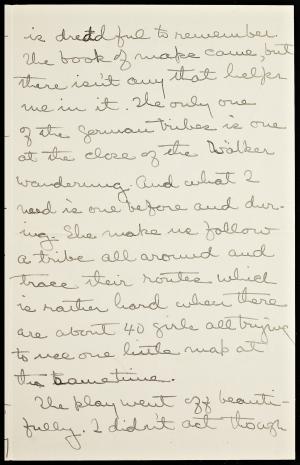 is dreadful to remember.
The book of maps came, but
there isn't any that helps
me in it. The only one
of the German tribes is one
at the close of the Wölker
wandering. And what I
need is one before and dur-
ing. She make us follow
a tribe all around and
trace their routes which
is rather hard when there
are about 40 girls all trying
to use one little map at
the sametime.
The play went off beauti-
fully. I didn't act though